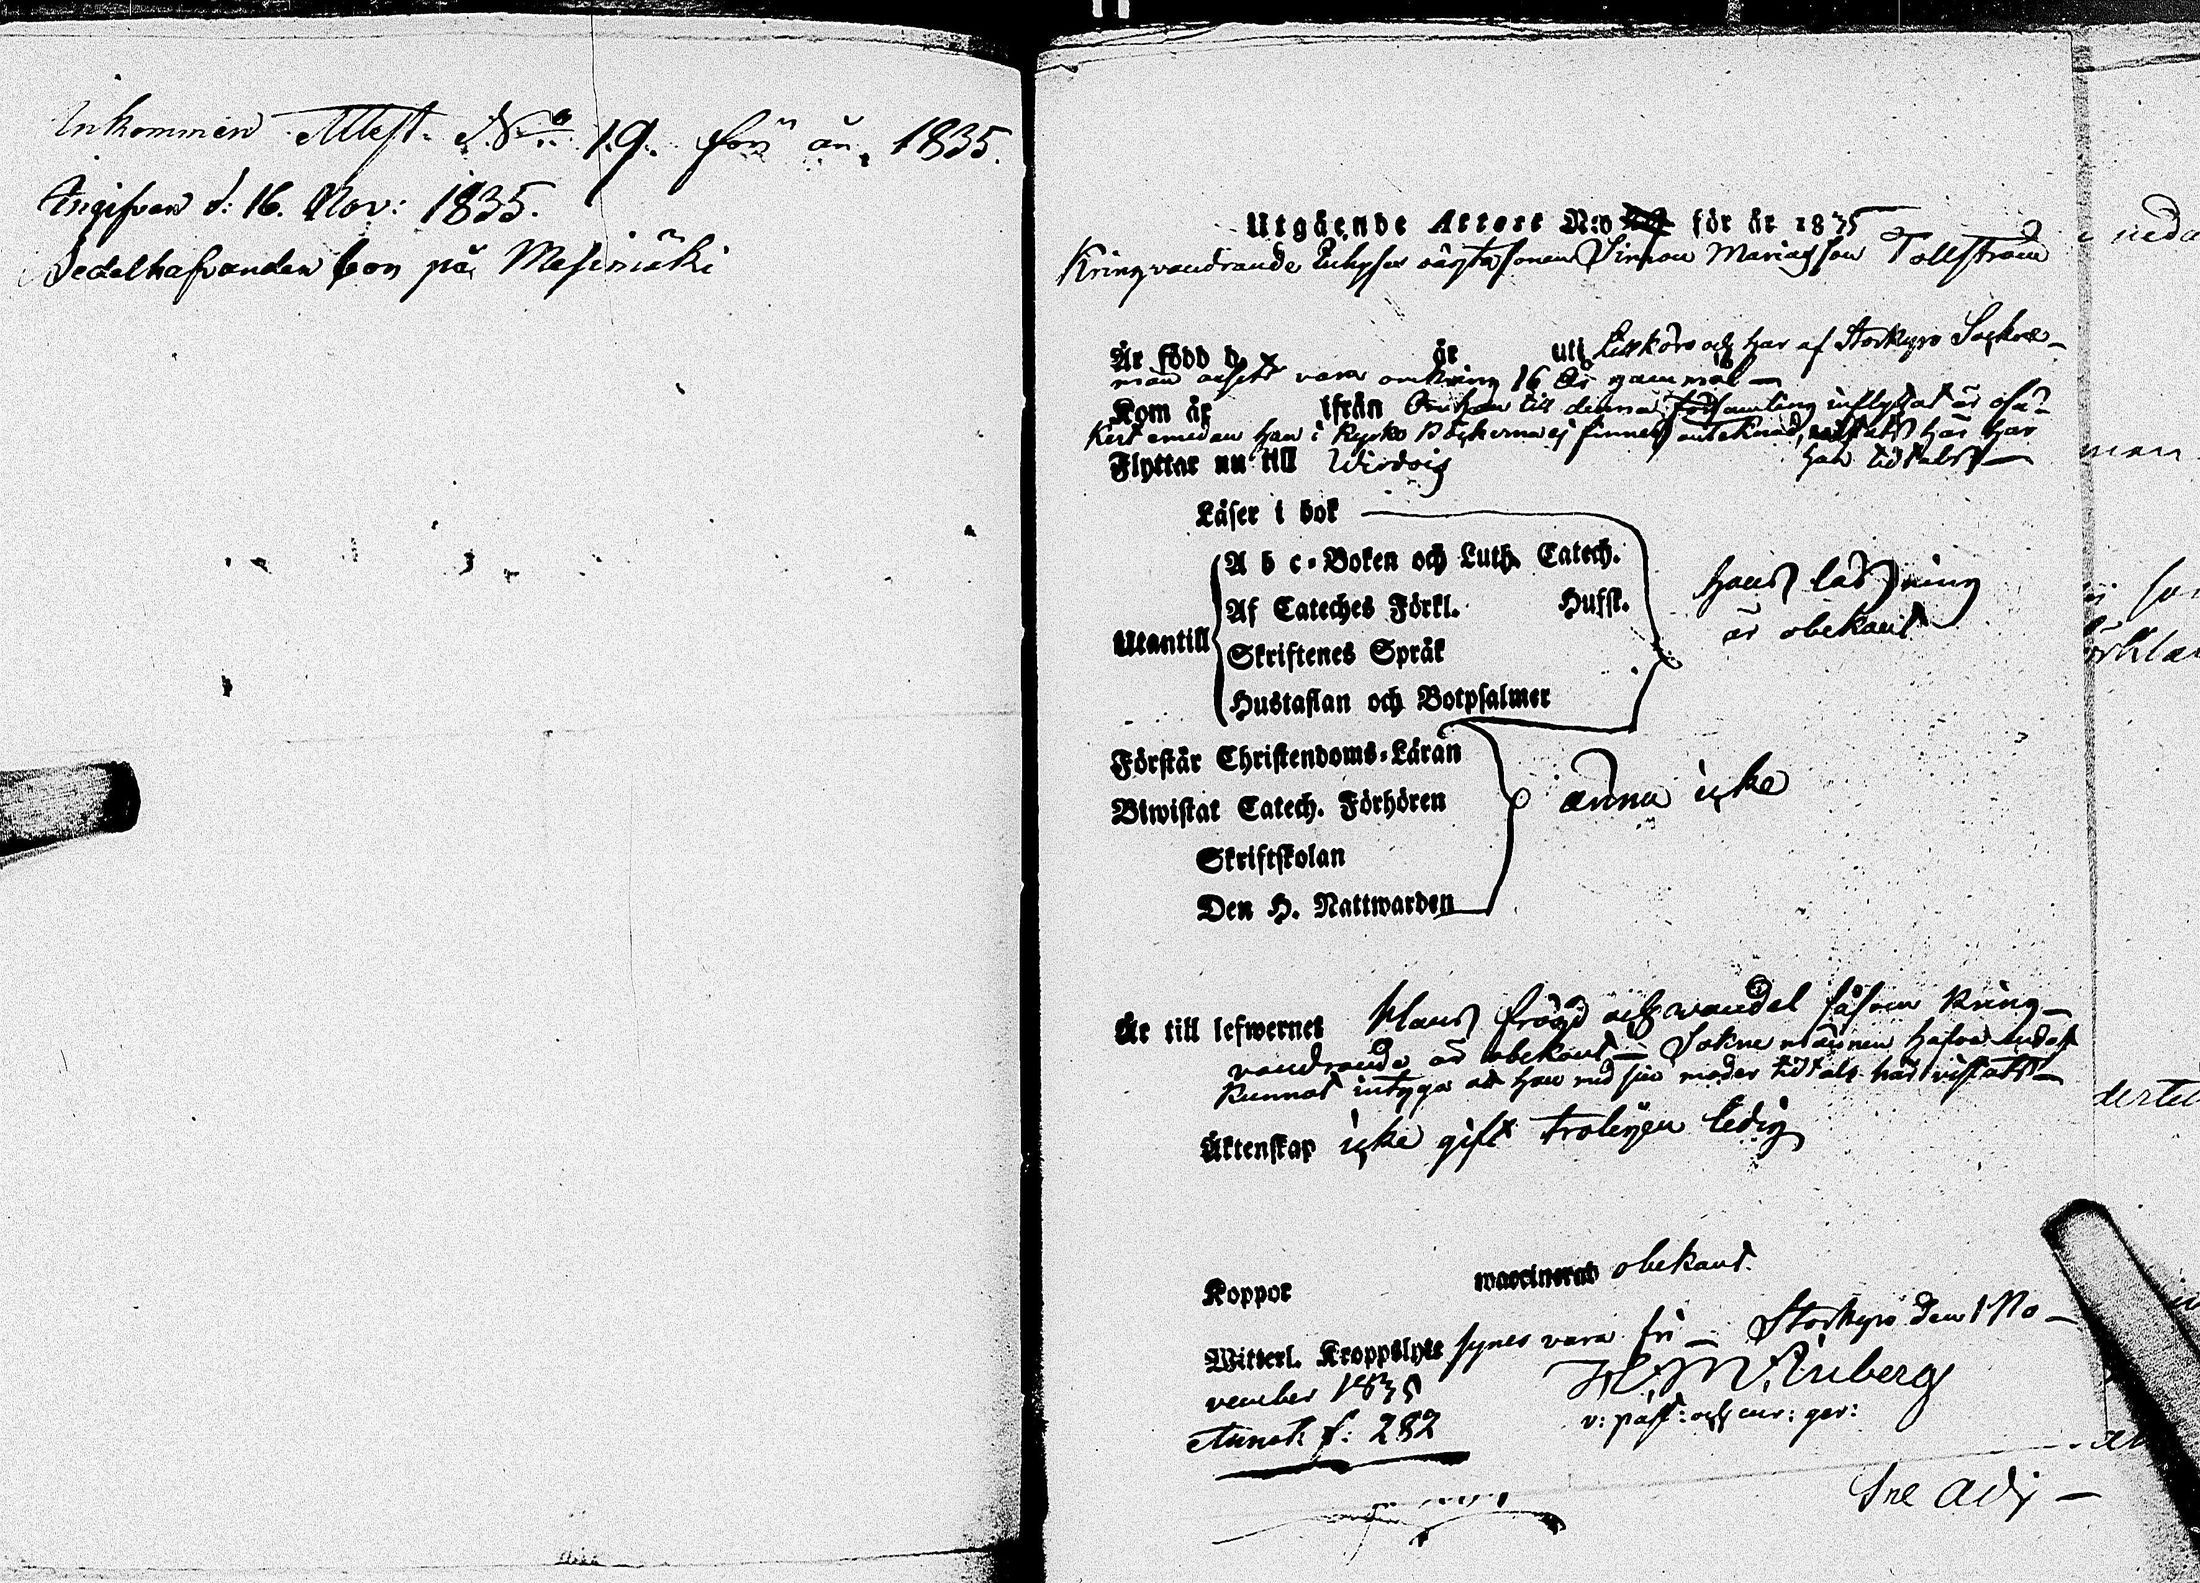 Inkommen Attest. No. 19. för år 1835.
Angifven d: 16. Nov: 1835.
Sedelhafvanden bor på Mesimäki
Utgående Attest N:o för år 1835
Kringvandrande Enkyses oägta sonen Simon Mariasson Tollström
Är född d. år uti Lillkyro och har af Storkyro Sockne-
män ansetts vara omkring 16 år gammal —
Kom år ifrån Om han till denna församling inflyttat är osä-
kert emedan han i Kyrko Böckerna ej finnes antecknad, här har
Flyttar nu till Wirdois han tidtals —
Läser i bok
A b c-Boken och Luth. Catech.
Af Cateches Förkl. Husf.
hans läsning
är obekant
Utantill
Skriftenes Språk
Hustaflan och Botpsalmer
Förstår Christendoms-Läran
Biwistat Catech. Förhören
ännu icke
Skriftskolan
Den H. Nattwarden
Är till lefwernet Hans frögd och vandel såsom kring-
vandrande är obekant — Sokne männen hafva endast
kunnat intyga att han med sin moder tidtals här vistats —
Äktenskap icke gift troligen ledig
Koppor waccinerad obekant.
Witterl. Kroppslyte synes vara fri — Storkyro den 1 No-
vember 1835
v: past: och cur: ger:
Annot: f: 282